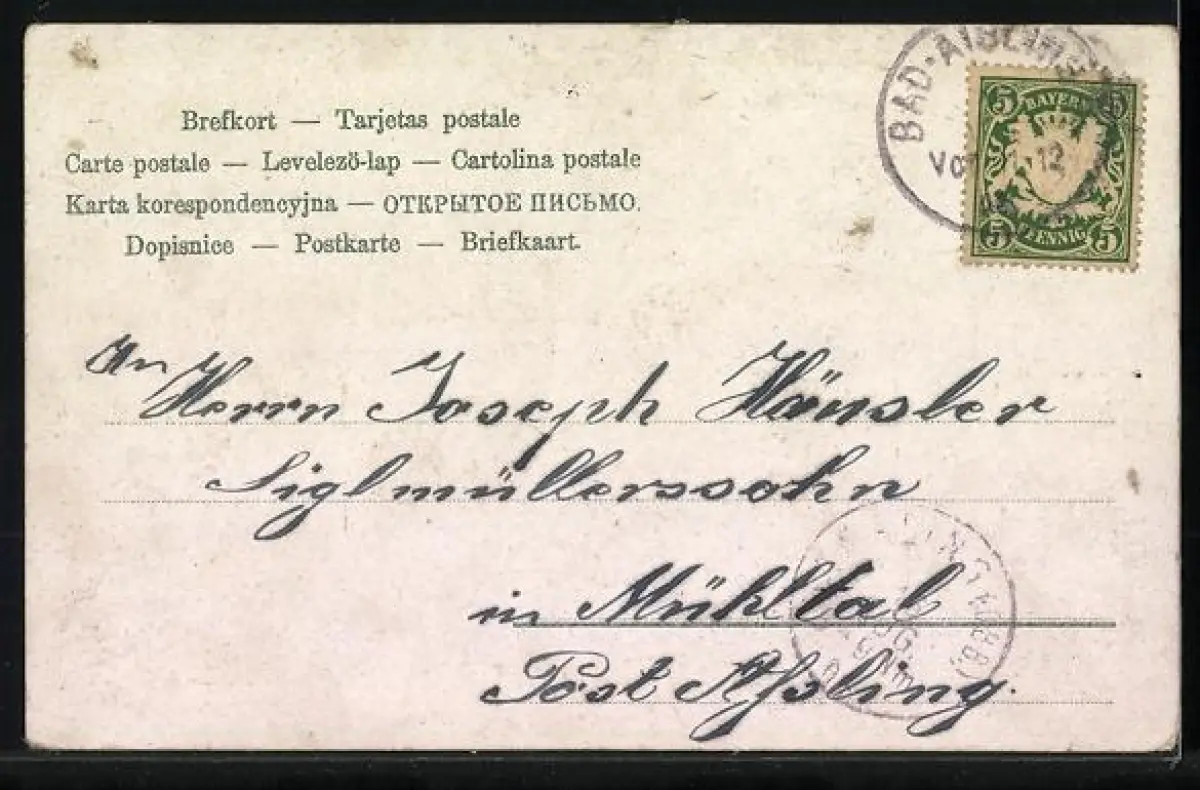 Brefkort — Tarjetas postale
Carte postale — Levelezö-lap — Cartolina postale
Karta korespondencyjna — ОТКРЫТОЕ ПИСЬМО.
Dopisnice — Postkarte — Briefkaart.
BAD-AIBLING
Vor 12
5 BAYERN 5
5 PFENNIG 5
An
Herrn Joseph Häusler
Siglmüllerssohn
in Mühltal
Post Assling.